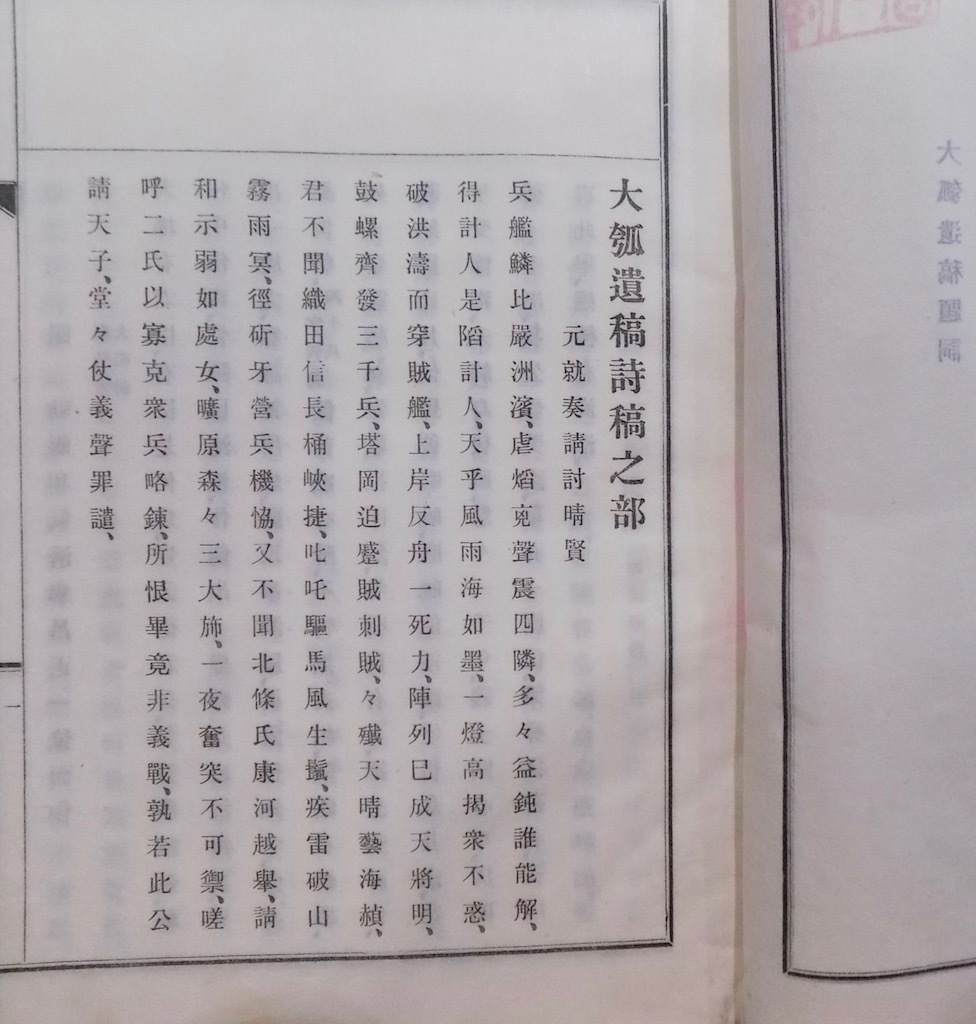 大瓠遺稿題詞
大瓠遺稿詩稿之部
元就奏請討晴賢
兵艦鱗比嚴洲濱、虐熖兇聲震四隣、多々益鈍誰能解、
得計人是陷計人、天乎風雨海如墨、一燈高揭衆不惑、
破洪濤而穿賊艦、上岸反舟一死力、陣列巳成天將明、
鼓螺齊發三千兵、塔岡迫蹙賊刺賊、々殲天晴藝海赬、
君不聞織田信長桶峽捷、叱吒驅馬風生鬣、疾雷破山
霧雨冥、徑斫牙營兵機恊、又不聞北條氏康河越舉、請
和示弱如處女、曠原森々三大斾、一夜奮突不可禦、嗟
呼二氏以寡克衆兵略鍊、所恨畢竟非義戰、孰若此公
請天子、堂々仗義聲罪譴、
一